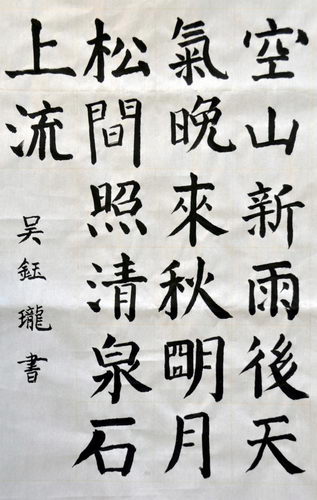 空山新雨後天
氣晚來秋明月
松間照清泉石
上流
吳鈺瓏書